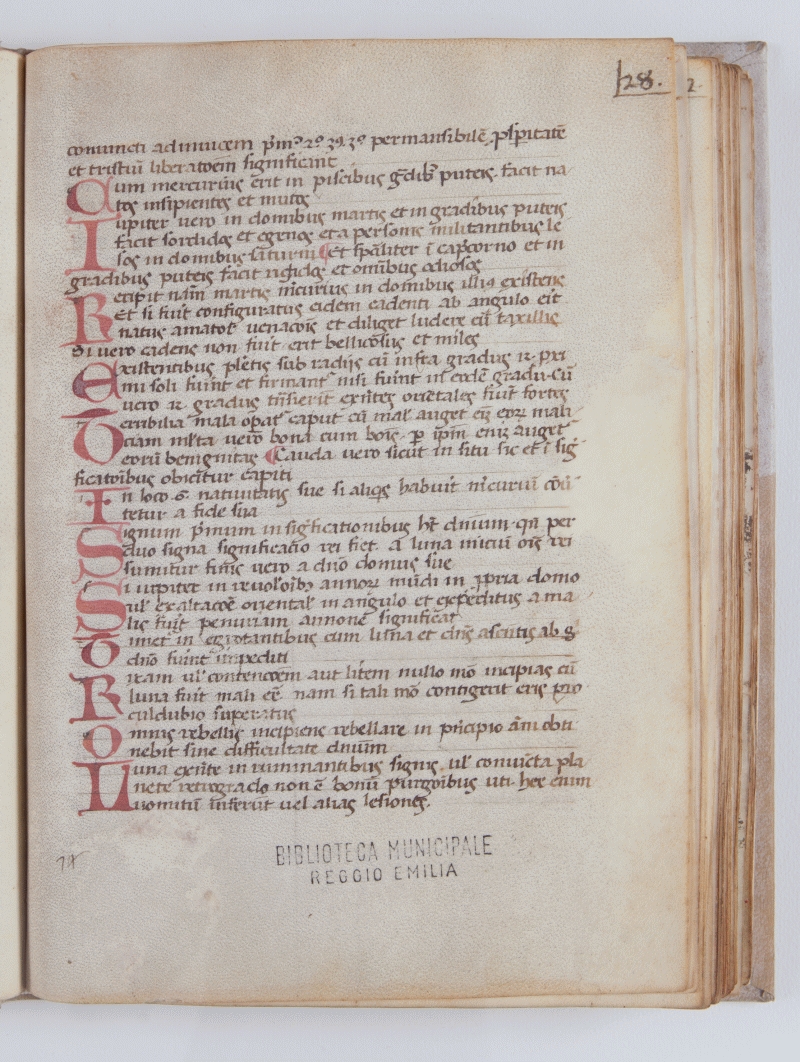 128.
2
conuincti adinuicem permansibilē
et tristiū liberatoem significant
Cum mercurius erit in piscibus puteis. facit na
tos insipientes et mutos
Iupiter uero in domibus martis et in gradibus puteis
facit sordidos et egenos et a personis militantibus le
sos in domibus saturni Et spāliter ī cap̄corno et in
gradibus puteis facit et omībus odiosos
Recipit nam̄ martis m̄curius in domibus illius existens
Et si fuit configuratus eidem cadenti ab angulo erit
natus amator uenacōis et diliget ludere cū taxillis
Si uero cadens non fuit erit bellicosus et miles
Existentibus plētis sub radijs cū infra gradus 12
mi soli fuint et firmant nisi fuint in eodē gradu. Cū
uero 12 gradus exn̄tes orientales fiūt fortes
Terribilia mala caput cū mal auget eorȝ mali
ciam uero bona cum boīs auget
eorū benignitas Cauda uero sicut in situ sic et ī sig
ficatoibus obicitur capiti
In loco 6 natiuitatis sue si aliqs habuit m̄curiū
tetur a fide sua
Signum p̄mum in sigficationibus hēt dn̄ium. qn̄ per
duo signa significatio rei fiet. A luna iniciū oīs rei
sumitur finis uero a dn̄o domus sue
Si iupiter in annorȝ mūdi in domo
ul exaltacōe oriental in angulo et expeditus a ma
lis fuit penuriam annone significat
Timet in egrotantibus cum luna et dn̄s ascn̄tis ab 8
dn̄o fuint īpediti
Rixam ul contencoem aut litem nullo mō incipias cū
luna fuit mali eē. nam si tali mō contigerit eris pro
culdubio superatus
Omnis rebellis incipiens rebellare in p̄ncipio ān̄i obti
nebit sine difficultate dn̄ium
Luna exn̄te in ruminantibus signis ul conuīcta pla
nete retrogrado non ē bonū purgoībus uti. hec enim
uomitū īferūt uel alias lesiones.
BIBLIOTECA MUNICIPALE
REGGIO EMILIA